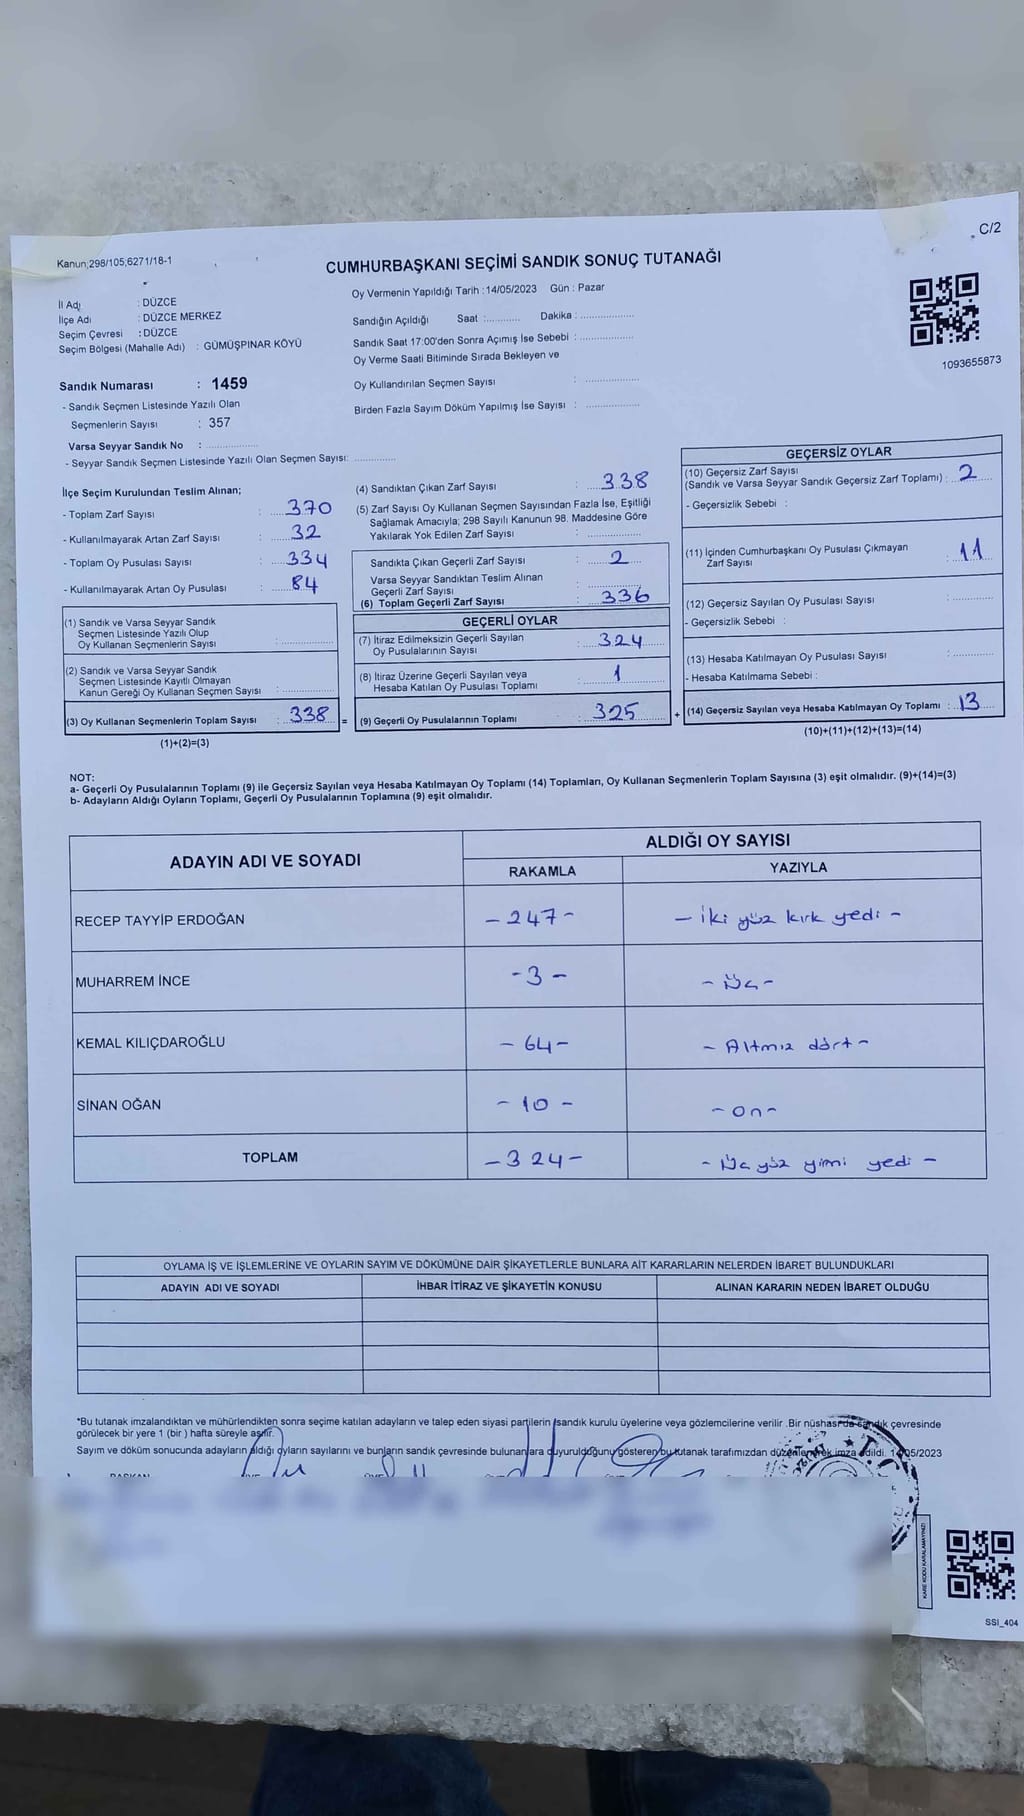 C/2
Kanun;298/105;6271/18-1
CUMHURBAŞKANI SEÇİMİ SANDIK SONUÇ TUTANAĞI
İl Adı : DÜZCE
İlçe Adı : DÜZCE MERKEZ
Seçim Çevresi : DÜZCE
Seçim Bölgesi (Mahalle Adı) : GÜMÜŞPINAR KÖYÜ
Sandık Numarası : 1459
- Sandık Seçmen Listesinde Yazılı Olan
Seçmenlerin Sayısı : 357
Varsa Seyyar Sandık No : ................
- Seyyar Sandık Seçmen Listesinde Yazılı Olan Seçmen Sayısı: ............
Oy Vermenin Yapıldığı Tarih : 14/05/2023 Gün : Pazar
Sandığın Açıldığı Saat :........... Dakika : ..................
Sandık Saat 17:00'den Sonra Açımış İse Sebebi : ..................
Oy Verme Saati Bitiminde Sırada Bekleyen ve
Oy Kullandırılan Seçmen Sayısı : ..................
Birden Fazla Sayım Döküm Yapılmış İse Sayısı : ..................
1093655873
İlçe Seçim Kurulundan Teslim Alınan;
- Toplam Zarf Sayısı : 370
- Kullanılmayarak Artan Zarf Sayısı : 32
- Toplam Oy Pusulası Sayısı : 334
- Kullanılmayarak Artan Oy Pusulası : 84
(1) Sandık ve Varsa Seyyar Sandık
Seçmen Listesinde Yazılı Olup
Oy Kullanan Seçmenlerin Sayısı : ..................
(2) Sandık ve Varsa Seyyar Sandık
Seçmen Listesinde Kayıtlı Olmayan
Kanun Gereği Oy Kullanan Seçmen Sayısı : ..................
(3) Oy Kullanan Seçmenlerin Toplam Sayısı : 338 =
(1)+(2)=(3)
(4) Sandıktan Çıkan Zarf Sayısı : 338
(5) Zarf Sayısı Oy Kullanan Seçmen Sayısından Fazla İse, Eşitliği
Sağlamak Amacıyla; 298 Sayılı Kanunun 98. Maddesine Göre
Yakılarak Yok Edilen Zarf Sayısı : ..................
Sandıkta Çıkan Geçerli Zarf Sayısı : 2
Varsa Seyyar Sandıktan Teslim Alınan
Geçerli Zarf Sayısı : ..................
(6) Toplam Geçerli Zarf Sayısı : 336
GEÇERLİ OYLAR
(7) İtiraz Edilmeksizin Geçerli Sayılan
Oy Pusulalarının Sayısı : 324
(8) İtiraz Üzerine Geçerli Sayılan veya
Hesaba Katılan Oy Pusulası Toplamı : 1
(9) Geçerli Oy Pusulalarının Toplamı : 325 +
GEÇERSİZ OYLAR
(10) Geçersiz Zarf Sayısı
(Sandık ve Varsa Seyyar Sandık Geçersiz Zarf Toplamı) : 2
- Geçersizlik Sebebi :
(11) İçinden Cumhurbaşkanı Oy Pusulası Çıkmayan
Zarf Sayısı : 11
(12) Geçersiz Sayılan Oy Pusulası Sayısı : ............
- Geçersizlik Sebebi :
(13) Hesaba Katılmayan Oy Pusulası Sayısı : ............
- Hesaba Katılmama Sebebi :
(14) Geçersiz Sayılan veya Hesaba Katılmayan Oy Toplamı : 13
(10)+(11)+(12)+(13)=(14)
NOT:
a- Geçerli Oy Pusulalarının Toplamı (9) ile Geçersiz Sayılan veya Hesaba Katılmayan Oy Toplamı (14) Toplamları, Oy Kullanan Seçmenlerin Toplam Sayısına (3) eşit olmalıdır. (9)+(14)=(3)
b- Adayların Aldığı Oyların Toplamı, Geçerli Oy Pusulalarının Toplamına (9) eşit olmalıdır.
ADAYIN ADI VE SOYADI ALDIĞI OY SAYISI
RAKAMLA YAZIYLA
RECEP TAYYİP ERDOĞAN - 247 - - İki yüz kırk yedi -
MUHARREM İNCE - 3 - - Üç -
KEMAL KILIÇDAROĞLU - 64 - - Altmış dört -
SİNAN OĞAN - 10 - - On -
TOPLAM - 324 - - Üç yüz yirmi yedi -
OYLAMA İŞ VE İŞLEMLERİNE VE OYLARIN SAYIM VE DÖKÜMÜNE DAİR ŞİKAYETLERLE BUNLARA AİT KARARLARIN NELERDEN İBARET BULUNDUKLARI
ADAYIN ADI VE SOYADI İHBAR İTİRAZ VE ŞİKAYETİN KONUSU ALINAN KARARIN NEDEN İBARET OLDUĞU
*Bu tutanak imzalandıktan ve mühürlendikten sonra seçime katılan adayların ve talep eden siyasi partilerin sandık kurulu üyelerine veya gözlemcilerine verilir .Bir nüshası da sandık çevresinde
görülecek bir yere 1 (bir ) hafta süreyle asılır.
Sayım ve döküm sonucunda adayların aldığı oyların sayılarını ve bunların sandık çevresinde bulunanlara duyurulduğunu gösteren bu tutanak tarafımızdan düzenlenerek imza edildi. 14/05/2023
BAŞKAN
T.C.
KARE KODU KARALAMAYINIZ!
SSI_404